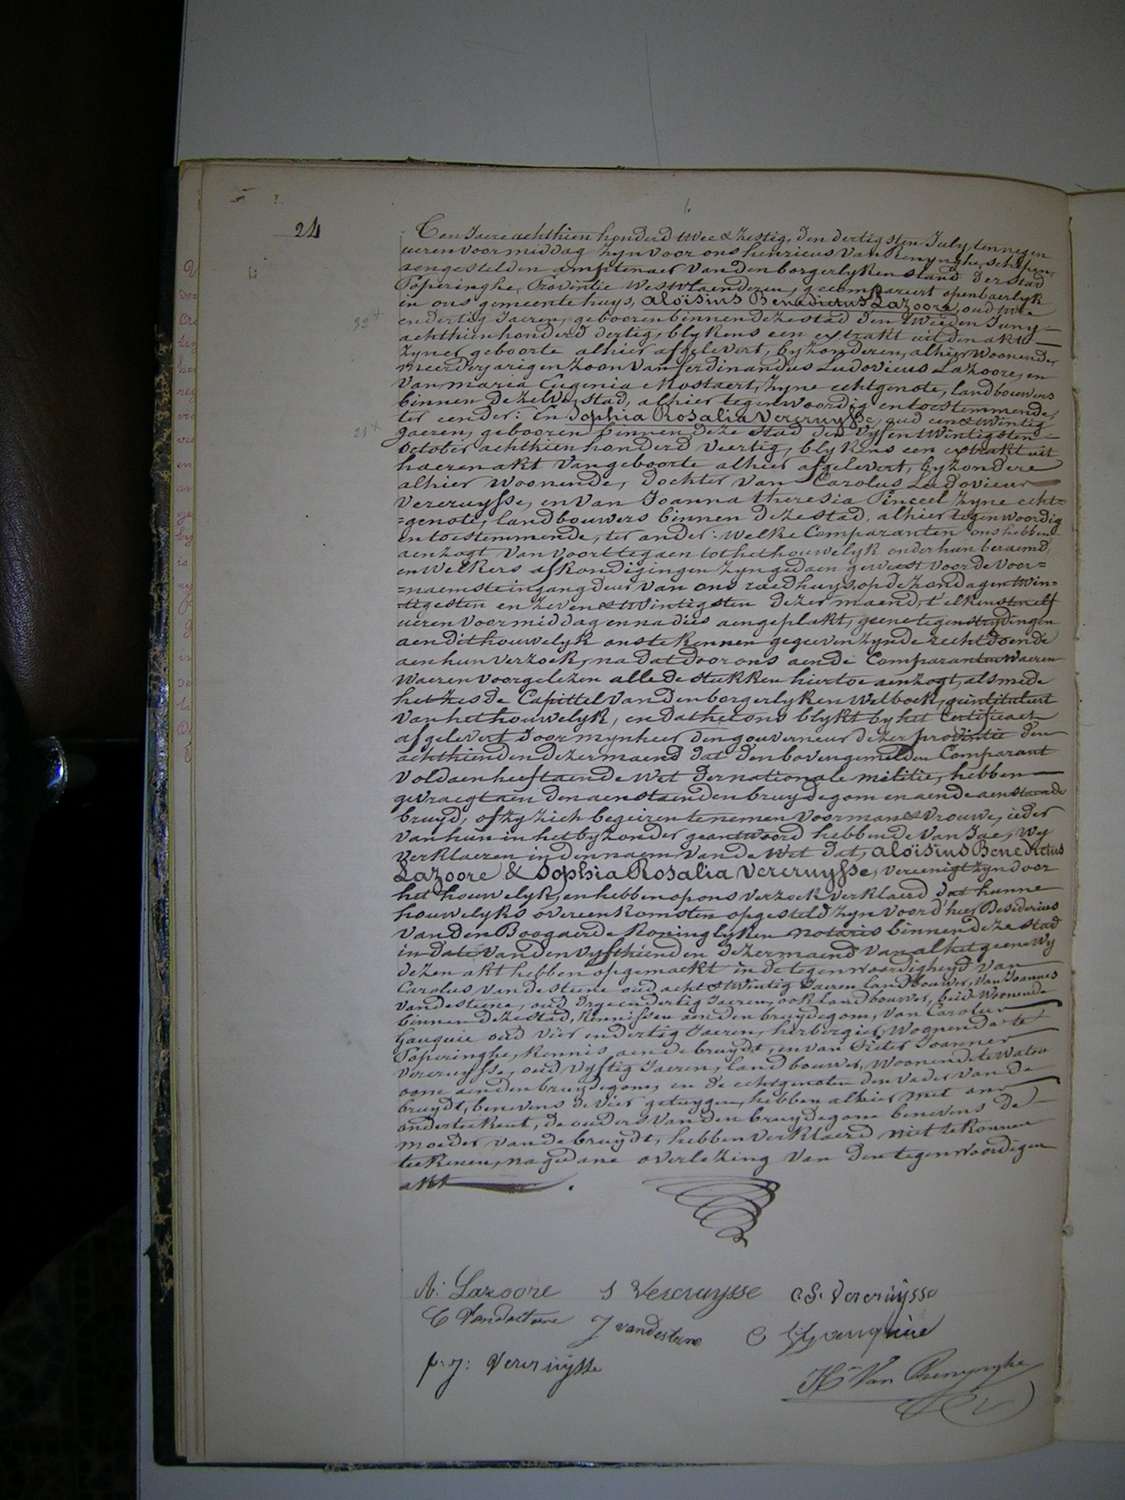 24
Ten Jaere achthien honderd twee & zestig, den dertigsten July, ten negen
ueren voormiddag zyn voor ons henricus Van Renynghe, schepen,
aengestelden amptenaer van den borgerlyken stand der stad
Poperinghe, Provintie Westvlaenderen, gecompareert openbaerlyk
in ons gemeente huys, Aloïsius Benedictus Lazoore, oud twee
32+
endertig Jaeren, gebooren binnen deze stad den tweeden Juny
achthien honderd dertig, blykens een extrakt uit den akte
zyner geboorte alhier afgelevert, byzonderen, alhier woonende,
meerderjarigen zoon van ferdinandus Ludovicus Lazoore, en
van maria Eugenia Mostaert, zyne echtgenote, landbouwers
binnen dezelve stad, alhier tegenwoordig en toestemmende,
ter eender: En Sophia Rosalia Vercruysse, oud een & twintig
21+
Jaeren, gebooren binnen deze stad den vyf en twintigsten
October achthien honderd veertig, blykens een extrakt uit
haeren akt van geboorte alhier afgelevert, byzondere
alhier woonende, dochter van Carolus Ludovicus
Vercruysse, en van Joanna theresia Pinceel zyne echt=
=genote, landbouwers binnen deze stad, alhier tegenwoordig
en toestemmende, ter ander: Welke Comparanten ons hebben
aenzogt van voort te gaen tot het houwelyk onder hun beraemd,
en welkers afkondigingen zyn gedaen geweest voor de voor=
=naemste ingangdeur van ons raedhuys op de zondagen twin-
tigsten en zeven & twintigsten dezer maend, t'elkens ten elf
ueren voormiddag en na dies aengeplakt, geene tegenstrydingen
aen dit houwelyk ons te kennen gegeeven zynde rechtdoende
aen hun verzoek, na dat door ons aen de Comparanten waeren
waeren voorgelezen alle de stukken hiertoe aenzogt, alsmede
het zesde Capittel van den borgerlyken Wetboek, geintituleert
van het houwelyk, en dat het ons blykt by het Certificaet
afgelevert door mynheer den gouverneur dezer provintie den
achthienden dezer maend dat den bovengemelden Comparant
voldaen heeft aen de wet der nationale militie, hebben
gevraegt aen den aenstaenden bruydegom en aen de aenstaende
bruyd, of zy zich begeiren te nemen voor man & vrouwe, ieder
van hun in het byzonder geantwoord hebbende van Jae, Wy
verklaeren in den naem van de Wet dat, Aloïsius Benedictus
Lazoore & Sophia Rosalia Vercruysse, vereenigt zyn door
het houwelyk, en hebben op ons verzoek verklaerd dat hunne
houwelyks overeenkomsten opgesteld zyn voor d'heer Desiderius
van den Boogaerde Koninglyken notaris binnen deze stad
in date van den vyfthienden dezer maend van al het geene Wy
dezen akt hebben opgemaekt in de tegenwoordigheyd van
Carolus Van de Steene oud acht & twintig Jaeren landbouwer, van Joannes
Vandesteene, oud dry en dertig Jaeren, ook landbouwer, beide woonende
binnen deze stad, kennissen aen den bruydegom, van Carolus
Gauquie oud vier en dertig Jaeren, herbergier, woonende te
Poperinghe, kennis aen de bruydt, en van Pieter Joannes
Vercruysse, oud vyftig Jaeren, landbouwer, woonende te Watou
oom aen den bruydegom, en de echtgenoten den vader van de
bruydt, benevens de vier getuygen, hebben alhier met ons
onderteekent, de ouders van den bruydegom benevens de
moeder van de bruydt, hebben verklaerd niet te konnen
teekenen, na gedane overlezing van den tegenwoordigen
akt.
A: Lazoore S Vercruysse C S. Vercruysse
C Vandesteene J vandesteene C Gauquie
p: j: Vercruysse
H Van Renynghe